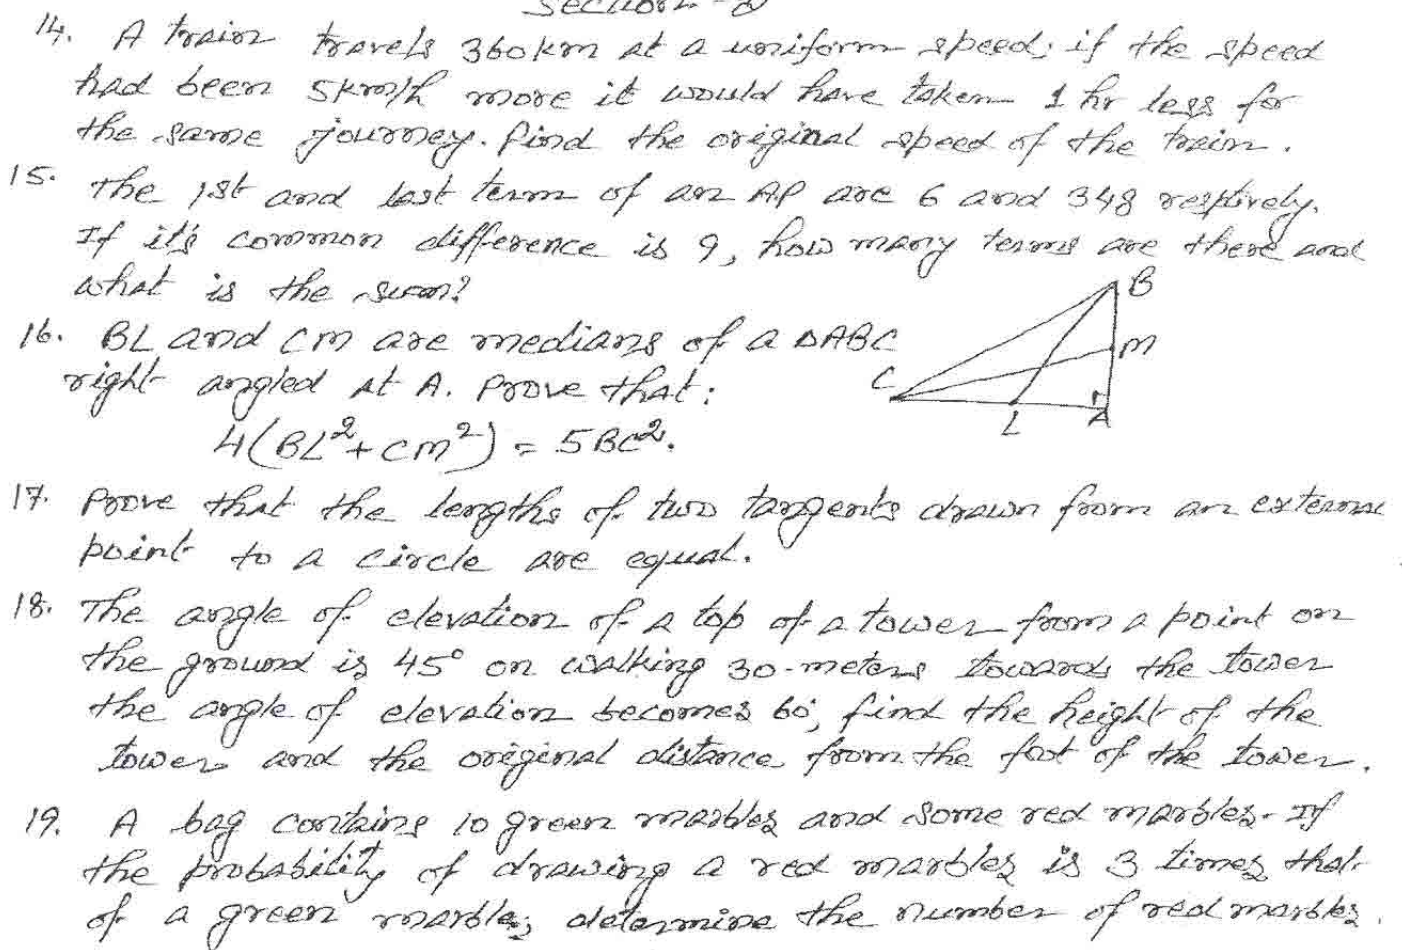 14. A train travels 360km at a uniform speed, if the speed
had been 5km/h more it would have taken 1 hr less for
the same journey. find the original speed of the train.
15. The 1st and last term of an AP are 6 and 348 resptively.
If it's common difference is 9, how many terms are there and
what is the sum?
16. BL and CM are medians of a △ABC
right angled at A. Prove that:
4(BL²+CM²) = 5BC².
B
M
C
L
A
17. Prove that the lengths of two tangents drawn from an external
point to a circle are equal.
18. The angle of elevation of a top of a tower from a point on
the ground is 45° on walking 30-meters towards the tower
the angle of elevation becomes 60°, find the height of the
tower and the original distance from the foot of the tower.
19. A bag contains 10 green marbles and some red marbles. If
the probability of drawing a red marbles is 3 times that
of a green marble; determine the number of red marbles.